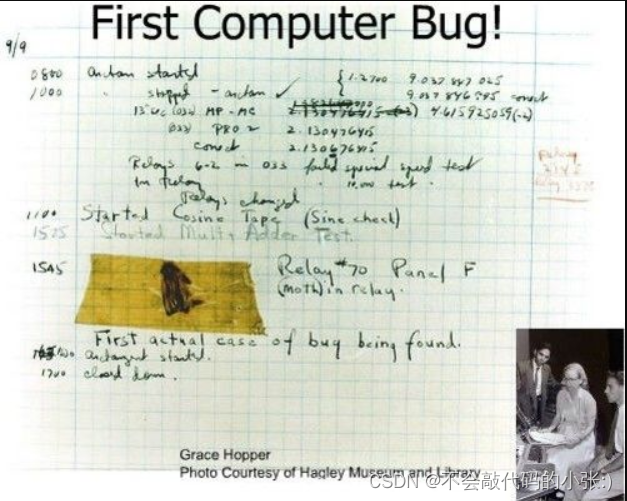 First Computer Bug!
9/9
0800 Antan started
1000 " stopped - antan ✓ { 1.2700 9.037 847 025
9.037 846 995 correct
13"uc (032) MP - MC 2.130476415 4.615925059(-2)
(033) PRO 2 2.130476415
correct 2.130676415
Relays 6-2 in 033 failed special speed test
in relay " 10.000 test .
Relays changed
1100 Started Cosine Tape (Sine check)
1525 Started Multi Adder Test.
1545 Relay #70 Panel F
(moth) in relay.
First actual case of bug being found.
antangent started.
1700 closed down.
Grace Hopper
Photo Courtesy of Hagley Museum and Library
CSDN @不会敲代码的小张:)